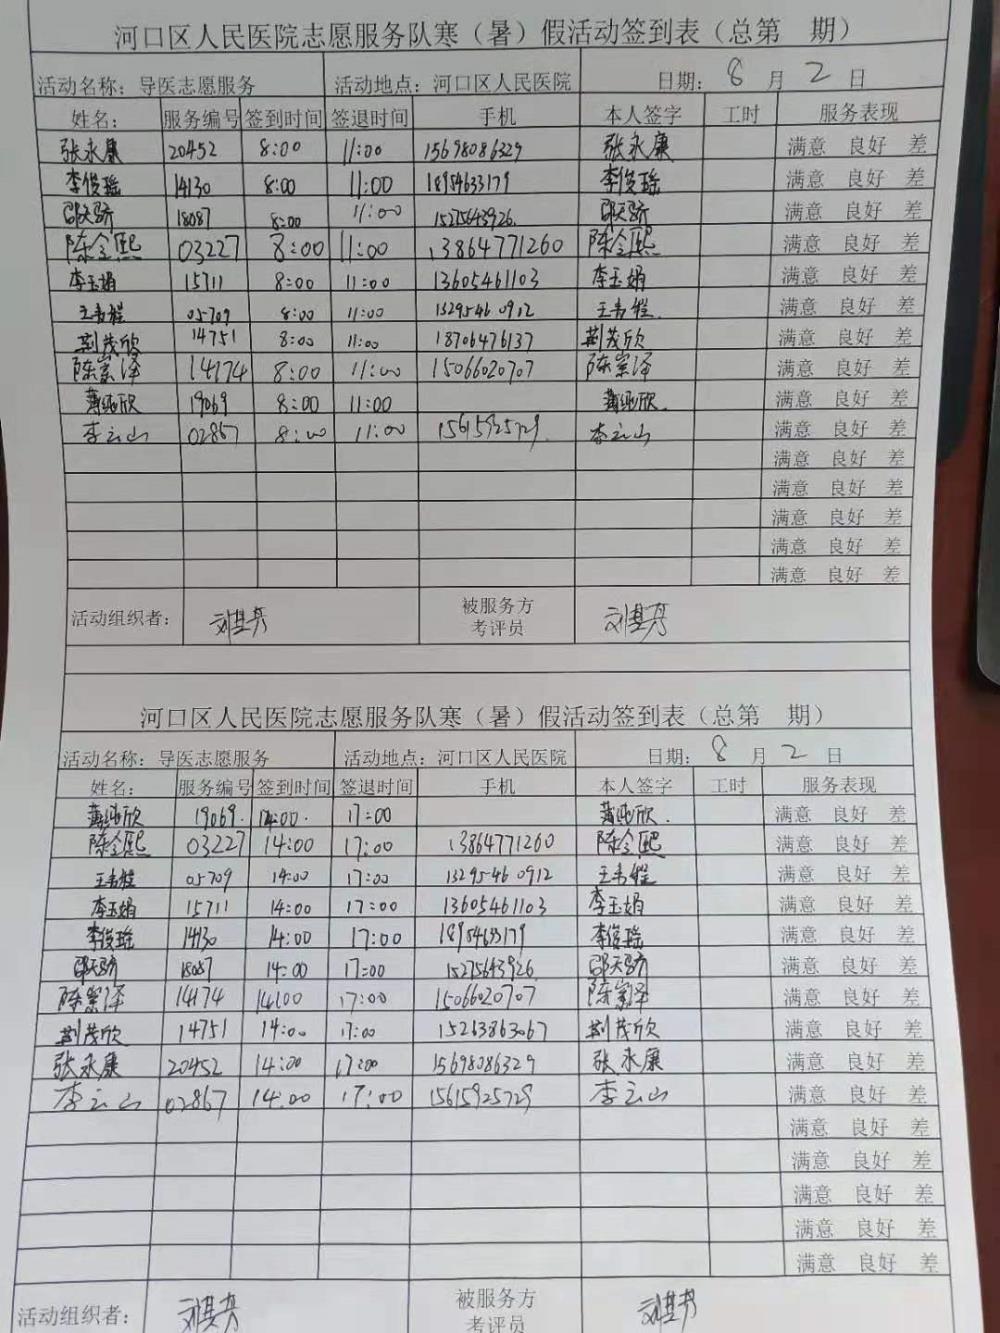 河口区人民医院志愿服务队寒（暑）假活动签到表（总第 期）
活动名称：导医志愿服务 活动地点：河口区人民医院 日期：8月2日
姓名： 服务编号 签到时间 签退时间 手机 本人签字 工时 服务表现
张永康 20452 8:00 11:00 15698086329 张永康 满意 良好 差
李俊瑶 14130 8:00 11:00 18954633179 李俊瑶 满意 良好 差
邵天骄 18087 8:00 11:00 15275643926 邵天骄 满意 良好 差
陈令熙 03227 8:00 11:00 13864771260 陈令熙 满意 良好 差
李玉娟 15711 8:00 11:00 13605461103 李玉娟 满意 良好 差
05709 8:00 11:00 13295460912 满意 良好 差
荆茂欣 14751 8:00 11:00 18706476137 荆茂欣 满意 良好 差
陈崇泽 14174 8:00 11:00 15066020707 陈崇泽 满意 良好 差
19069 8:00 11:00 满意 良好 差
李云山 02867 8:00 11:00 15615925729 李云山 满意 良好 差
满意 良好 差
满意 良好 差
满意 良好 差
满意 良好 差
满意 良好 差
活动组织者： 刘其丹 被服务方考评员 刘其丹
河口区人民医院志愿服务队寒（暑）假活动签到表（总第 期）
活动名称：导医志愿服务 活动地点：河口区人民医院 日期：8月2日
姓名： 服务编号 签到时间 签退时间 手机 本人签字 工时 服务表现
19069. 14:00. 17:00 满意 良好 差
陈令熙 03227 14:00 17:00 13864771260 陈令熙 满意 良好 差
05709 14:00 17:00 13295460912 满意 良好 差
李玉娟 15711 14:00 17:00 13605461103 李玉娟 满意 良好 差
李俊瑶 14130 14:00 17:00 18954633179 李俊瑶 满意 良好 差
邵天骄 18087 14:00 17:00 15275643926 邵天骄 满意 良好 差
陈崇泽 14174 14:00 17:00 15066020707 陈崇泽 满意 良好 差
荆茂欣 14751 14:00 17:00 15263863067 荆茂欣 满意 良好 差
张永康 20452 14:00 17:00 15698086329 张永康 满意 良好 差
李云山 02867 14:00 17:00 15615925729 李云山 满意 良好 差
满意 良好 差
满意 良好 差
满意 良好 差
满意 良好 差
满意 良好 差
活动组织者： 刘其丹 被服务方考评员 刘其丹